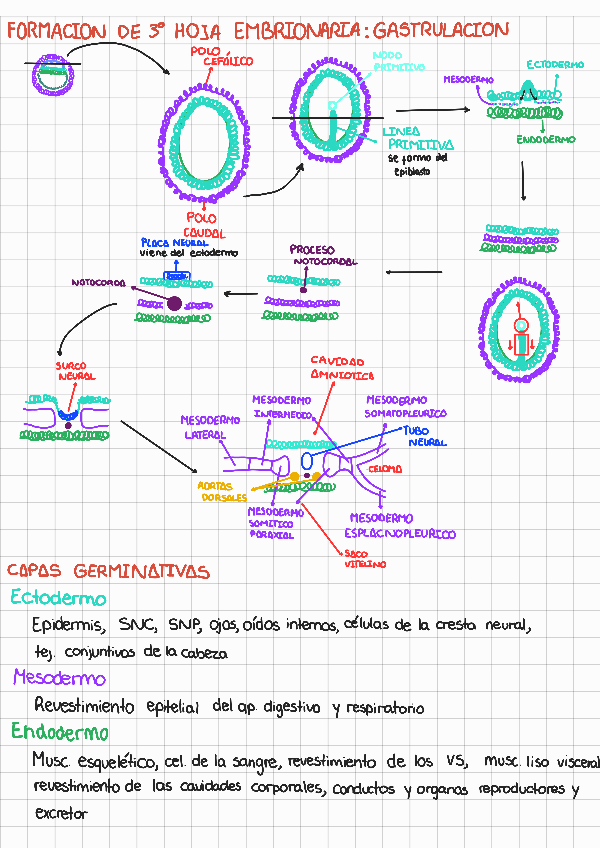 FORMACION DE 3º HOJA EMBRIONARIA: GASTRULACION
POLO
CEFÁLICO
NODO
PRIMITIVO
MESODERMO
ECTODERMO
LINEA
PRIMITIVA
se forma del
epiblasto
ENDODERMO
POLO
CAUDAL
PLACA NEURAL
viene del ectodermo
PROCESO
NOTOCORDAL
NOTOCORDA
SURCO
NEURAL
CAVIDAD
AMNIOTICA
MESODERMO
INTERMEDIO
MESODERMO
SOMATOPLEURICO
MESODERMO
LATERAL
TUBO
NEURAL
CELOMA
AORTAS
DORSALES
MESODERMO
SOMITICO
PARAXIAL
MESODERMO
ESPLACNOPLEURICO
SACO
VITELINO
CAPAS GERMINATIVAS
Ectodermo
Epidermis, SNC, SNP, ojos, oídos internos, células de la cresta neural,
tej. conjuntivos de la cabeza
Mesodermo
Revestimiento epitelial del ap. digestivo y respiratorio
Endodermo
Musc. esquelético, cel. de la sangre, revestimiento de los VS, musc. liso visceral
revestimiento de las cavidades corporales, conductos y organos reproductores y
excretor